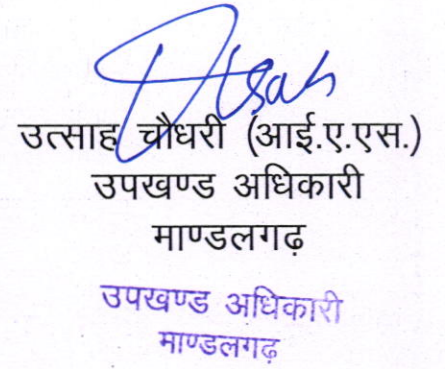 Utsah
उत्साह चौधरी (आई.ए.एस.)
उपखण्ड अधिकारी
माण्डलगढ़
उपखण्ड अधिकारी
माण्डलगढ़